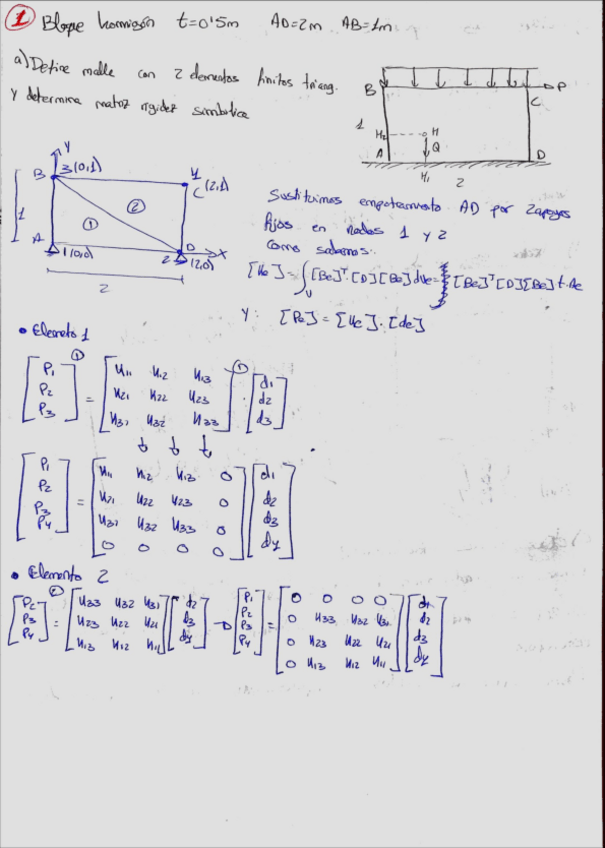 1 Bloque hormigón t=0'5m AD=2m AB=1m
a) Define malla con 2 elementos finitos triang.
y determina matriz rigidez simbólica
B P
C
1 H2 H
Q
A D
H1 2
Y
B 3(0,1) 4 C (2,1)
1 ① ②
A 1(0,0) 2 D (2,0) X
2
Sustituimos empotramiento AD por 2 apoyos
fijos en nodos 1 y 2
Como sabemos:
[Ke] = ∫V [Be]ᵀ·[D][Be] dVe = [Be]ᵀ[D][Be] t·Ae
Y: [Pe] = [Ke]·[de]
• Elemento 1
[P1 P2 P3]① = [K11 K12 K13
K21 K22 K23
K31 K32 K33]① · [d1 d2 d3]
[P1 P2 P3 P4] = [K11 K12 K13 0
K21 K22 K23 0
K31 K32 K33 0
0 0 0 0] [d1 d2 d3 d4]
• Elemento 2
[P2 P3 P4]② = [K33 K32 K31
K23 K22 K21
K13 K12 K11] [d2 d3 d4] → [P1 P2 P3 P4] = [0 0 0 0
0 K33 K32 K31
0 K23 K22 K21
0 K13 K12 K11] [d1 d2 d3 d4]